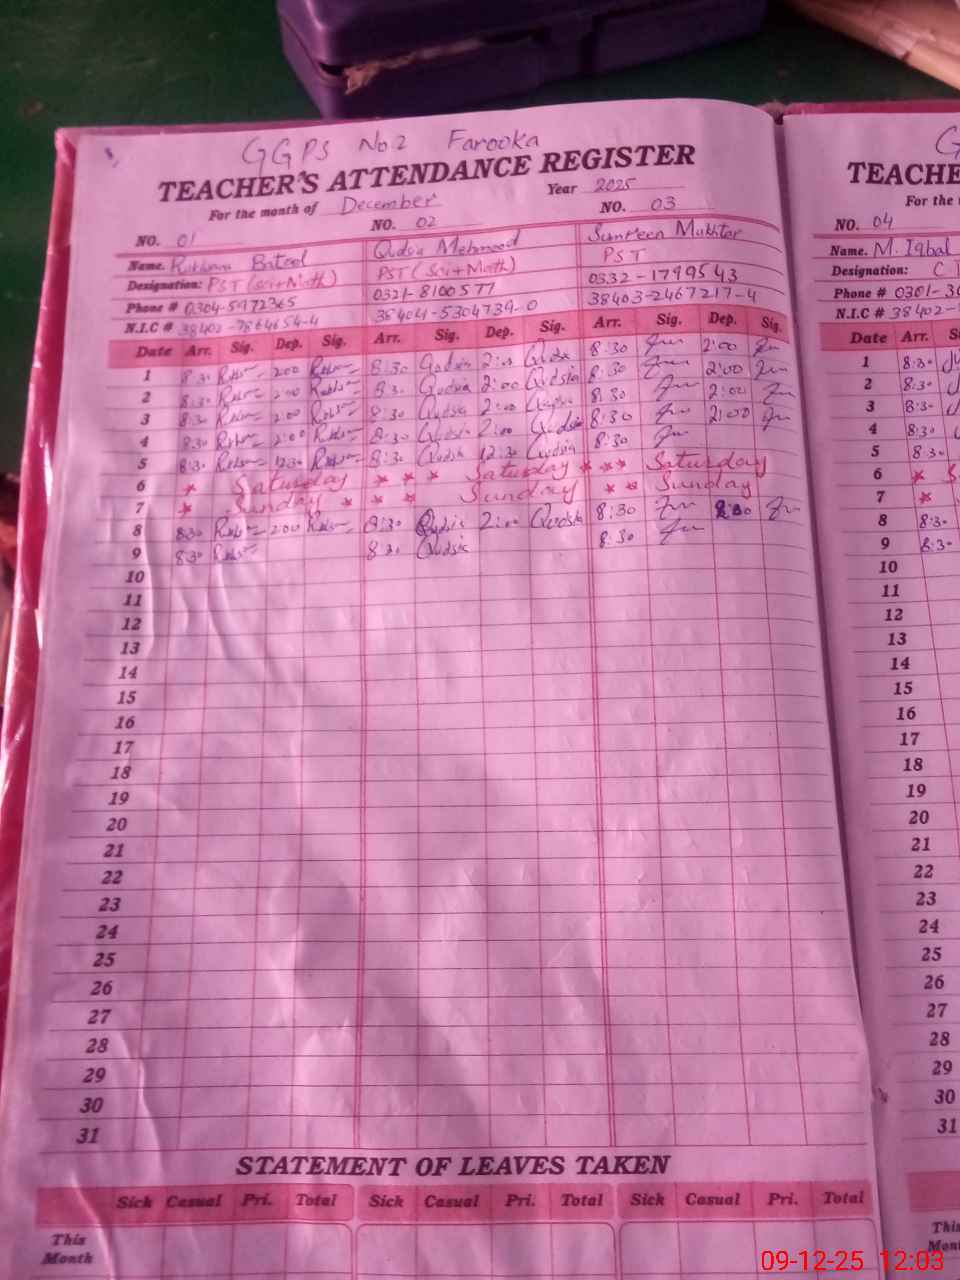 GGPS No.2 Farooka
TEACHER'S ATTENDANCE REGISTER
For the month of December Year 2025
NO. 01 NO. 02 NO. 03
Name. Batool Qudsia Mehmood Mukhtar
Designation: PST (Sci+Math) PST (Sci+Math) PST
Phone # 0304-5972365 0321-8100577 0332-1799543
N.I.C # 38403-2467217-4
Date Arr. Sig. Dep. Sig. Arr. Sig. Dep. Sig. Arr. Sig. Dep. Sig.
1 8:30 2:00 8:30 Qudsia 2:00 Qudsia 8:30 2:00
2 8:30 2:00 8:30 Qudsia 2:00 Qudsia 8:30 2:00
3 8:30 2:00 8:30 Qudsia 2:00 Qudsia 8:30 2:00
4 8:30 2:00 8:30 Qudsia 2:00 Qudsia 8:30 2:00
5 8:30 12:30 8:30 Qudsia 12:30 Qudsia 8:30
6 * Saturday * * * Saturday * * * Saturday
7 * Sunday * * * Sunday * * Sunday
8 8:30 2:00 8:30 Qudsia 2:00 Qudsia 8:30 2:00
9 8:30 8:30 Qudsia 8:30
10
11
12
13
14
15
16
17
18
19
20
21
22
23
24
25
26
27
28
29
30
31
STATEMENT OF LEAVES TAKEN
Sick Casual Pri. Total Sick Casual Pri. Total Sick Casual Pri. Total
This
Month
G
TEACHE
For the
NO. 04
Name. M. Iqbal
Designation: C
Phone # 0301-30
N.I.C # 38402-
Date Arr. S
1 8:30
2 8:30
3 8:30
4 8:30
5 8:30
6 * S
7 *
8 8:30
9 8:30
10
11
12
13
14
15
16
17
18
19
20
21
22
23
24
25
26
27
28
29
30
31
This
Mont
09-12-25 12:03